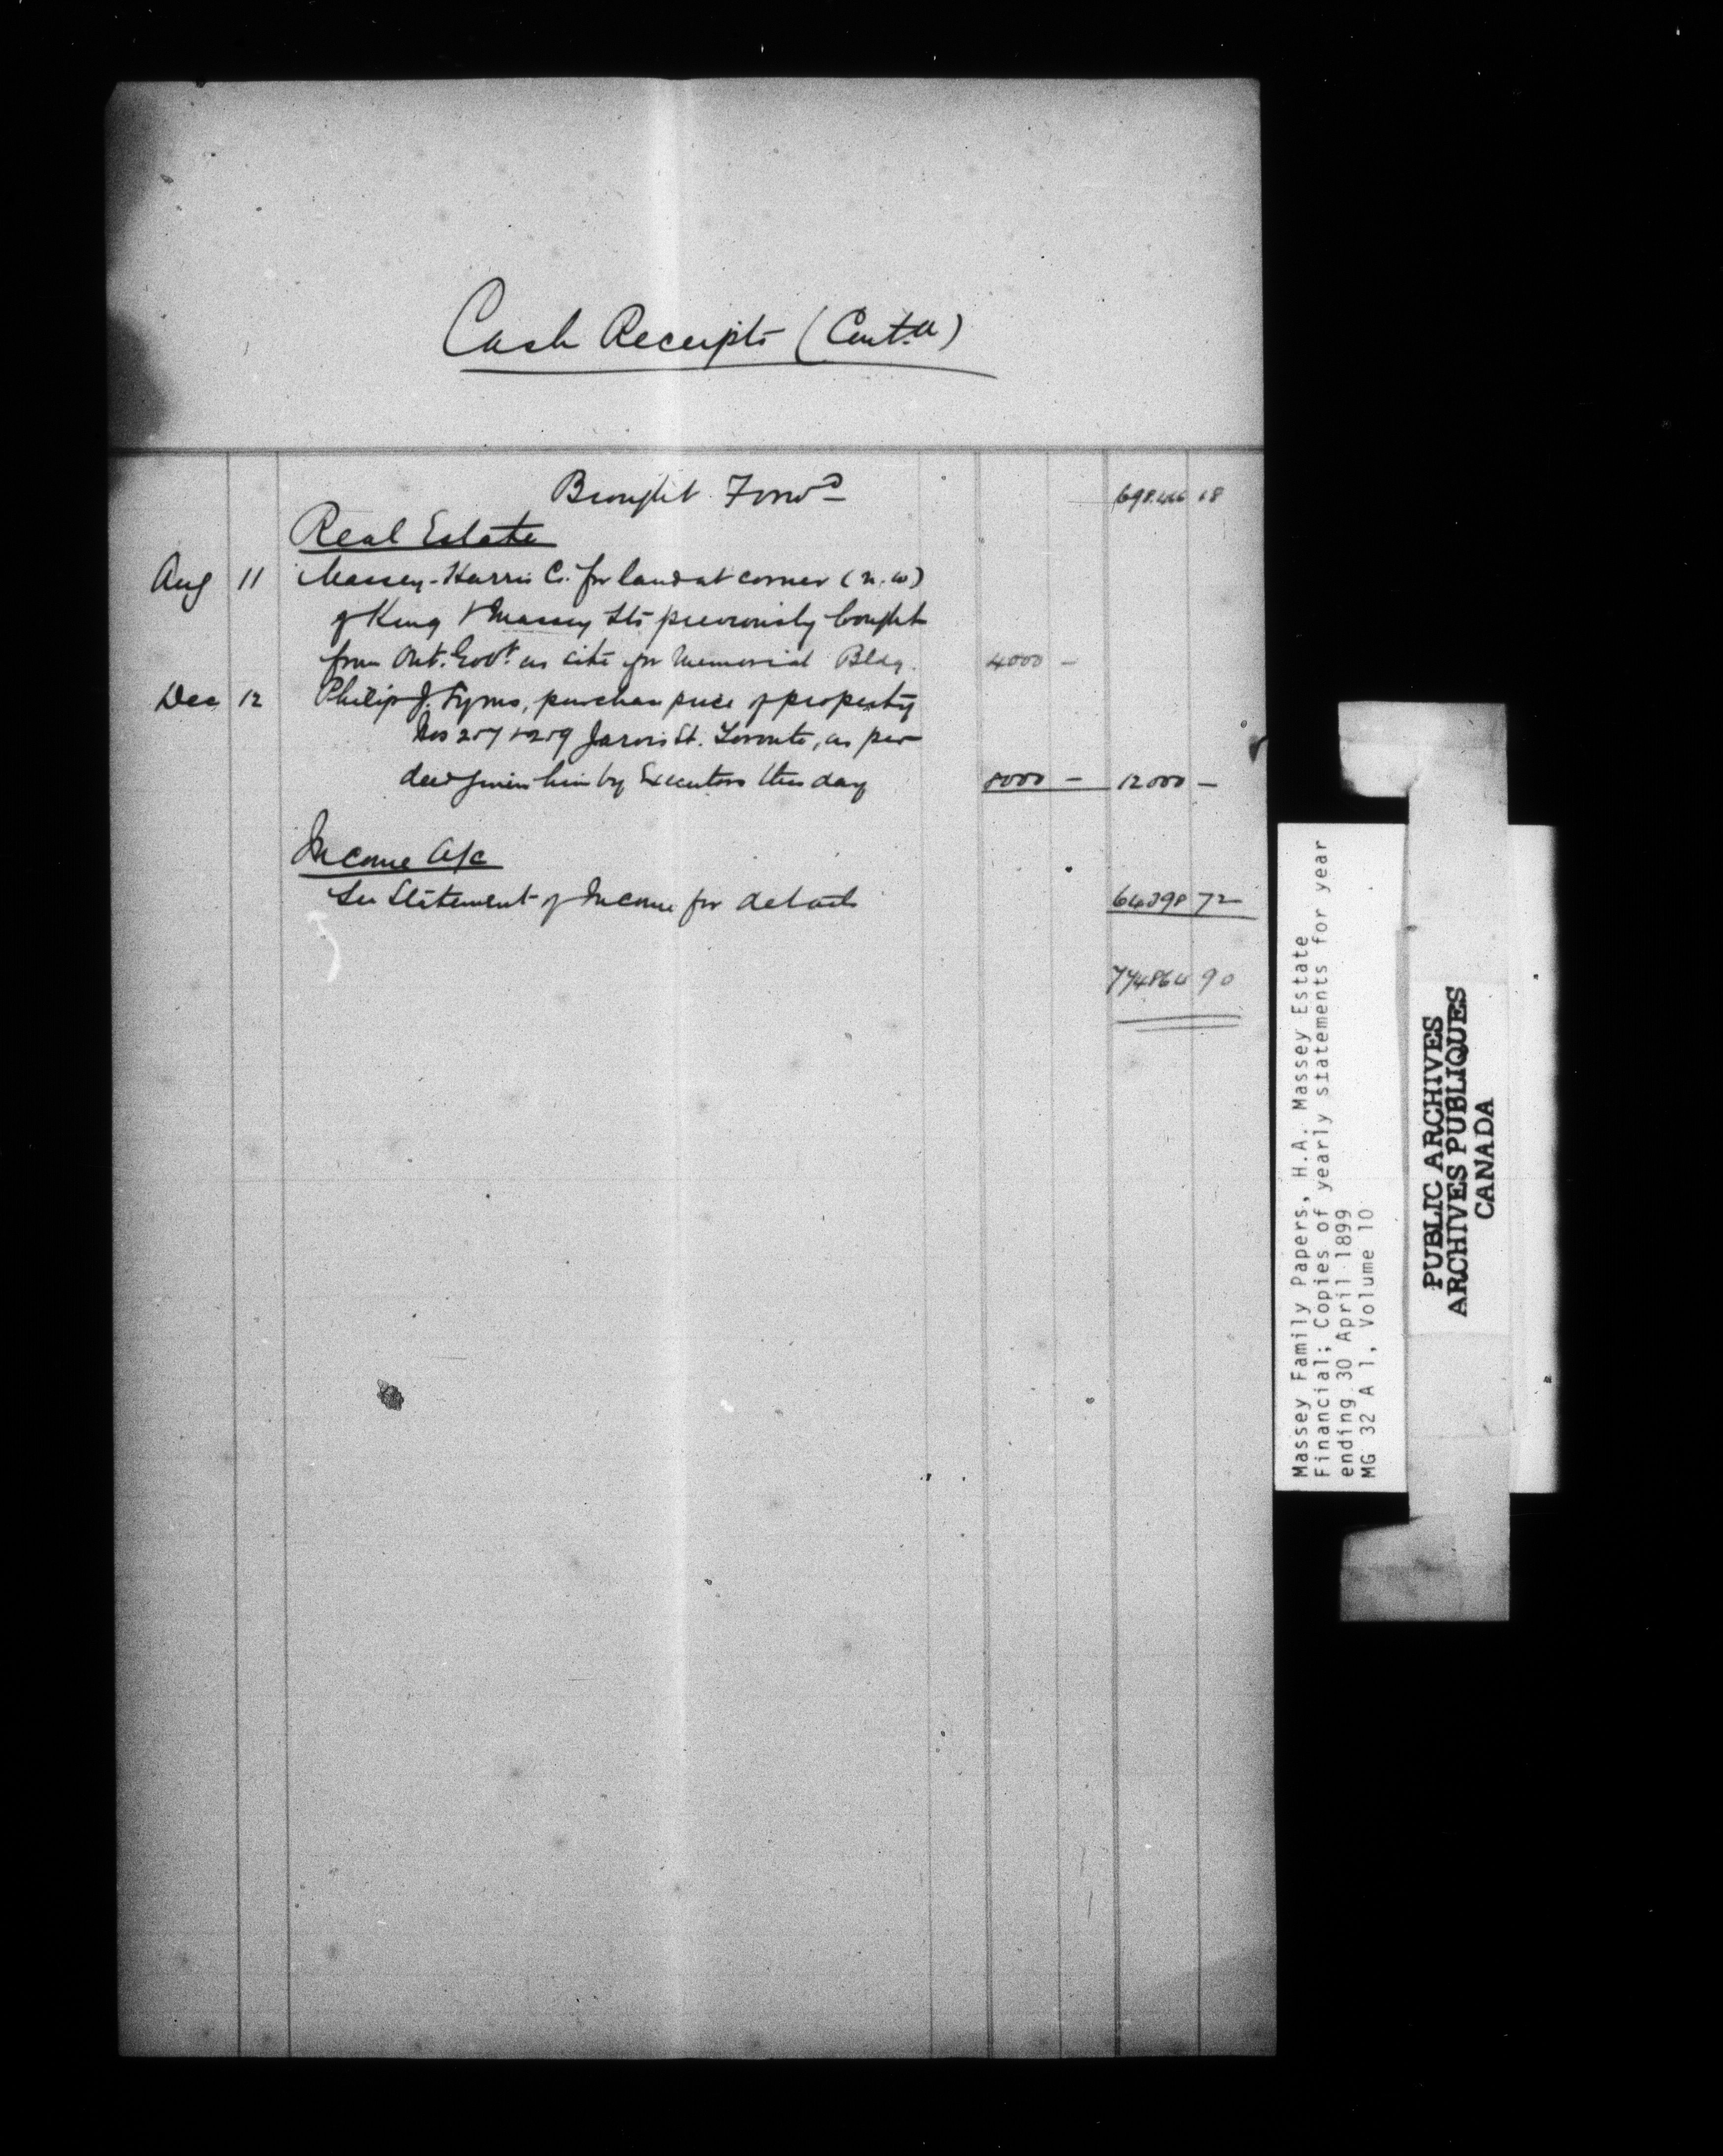 Cash Receipts (Cont.d)
Brought Forwd 698.466 18
Real Estate
Aug 11 Massey-Harris Co. for land at corner (n.w)
of King & Massey Sts previously bought
from Ont. Govt. as site for Memorial Bldg. 4000 –
Dec 12 Philip J. purchase price of property
Nos 257 & 259 Jarvis St. Toronto, as per
deed given him by Executors this day 8000 – 12000 –
Income A/c
See Statement of Income for details 64398 72
774864 90
Massey Family Papers, H.A. Massey Estate
Financial; Copies of yearly statements for year
ending 30 April 1899
MG 32 A 1, Volume 10
PUBLIC ARCHIVES
ARCHIVES PUBLIQUES
CANADA